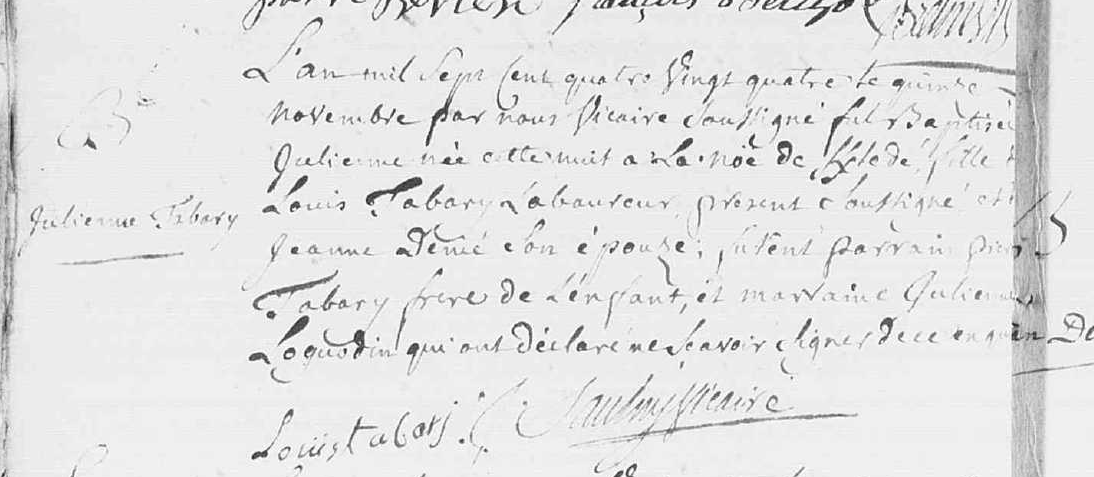 B
Julienne Tabary
L'an mil Sept Cent quatre Vingt quatre le quinze
novembre par nous Vicaire Soussigné fut Baptisée
Julienne née cette nuit a la noë de fille
Louis Tabary Laboureur, présent Soussigné et
Jeanne Denié Son épouze; furent parrain pierre
Tabary frere de L'enfant, et marraine Julienne
Loquodin qui ont déclaré ne Scavoir Signer de ce enquis De
Louis tabary Vicaire